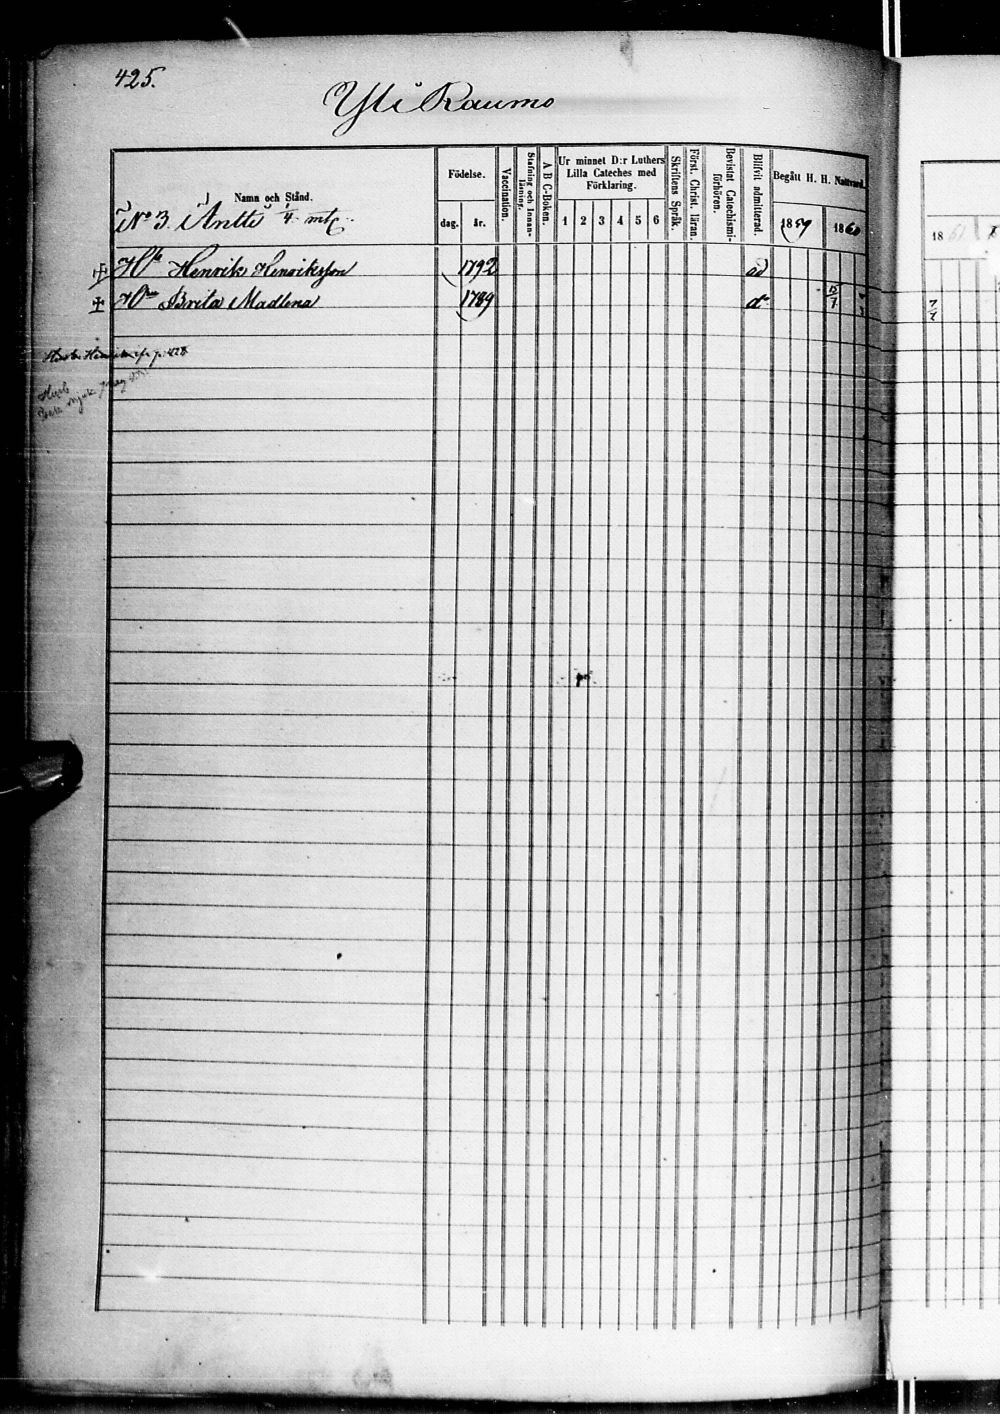 425.
Yli Raumo
Namn och Stånd.
Födelse.
dag. år.
Vaccination.
Stafning och Innanläsning.
A B C-Boken.
Ur minnet D:r Luthers Lilla Cateches med Förklaring.
1 2 3 4 5 6
Skriftens Språk.
Först. Christ. läran.
Bevistat Catechismi-förhören.
Blifvit admitterad.
Begått H. H. Nattvard.
1859 1860
1861
No 3. Antti 4. mtl.
Hb Henrik Henriksson 1792 ad
Hu Brita Madlena 1789 do 15/7 7/7
p. 428